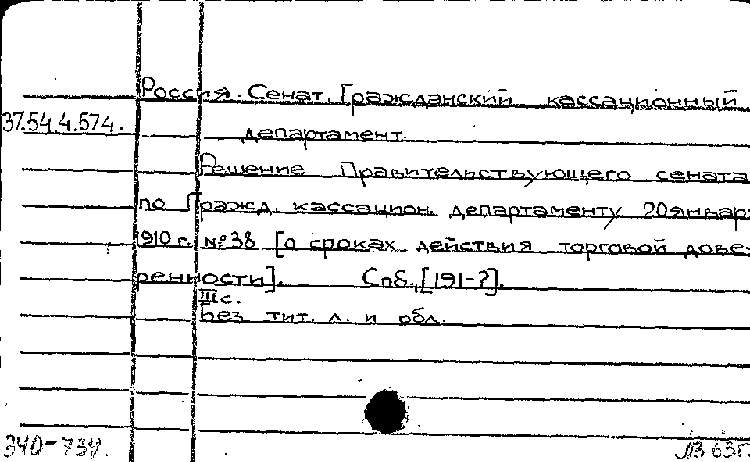 Россия. Сенат. Гражданский кассационный
37.54.4.574.
департамент.
Решение Правительствующего сената
по Гражд. кассацион. департаменту 20 январ
1910 г. № 38 [о сроках действия торговой дове-
ренности]. Спб., [191-?].
III с.
Без тит. л. и обл.
340-734.
ЛВ 63г.